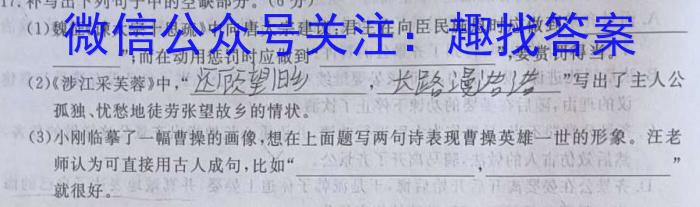 17.补写出下列句子中的空缺部分。(6分)
微信公众号关注：趣找答案
(1)魏
;而在动用惩罚时应做到"",要赏罚得当。
(2)《涉江采芙蓉》中,"还顾望旧乡,长路漫浩浩"写出了主人公
孤独、忧愁地徒劳张望故乡的情状。
(3)小刚临摹了一幅曹操的画像,想在上面题写两句诗表现曹操英雄一世的形象。汪老
师认为可直接用古人成句,比如",”
就很好。